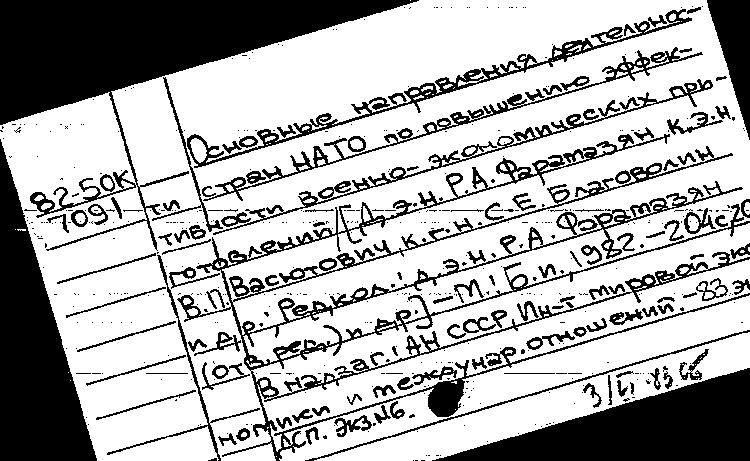 Основные направления деятельнос-
82-50К
7091
ти стран НАТО по повышению эффек-
тивности военно-экономических при-
готовлений/[Д.э.н. Р.А. Фарамазян, к.э.н.
В.П. Васютович, к.г.н. С.Е. Благоволин
и др.; Редкол.: д.э.н. Р.А. Фарамазян
(отв. ред.) и др.]-М.: Б.и., 1982.-204с, 20
В надзаг.: АН СССР, Ин-т мировой эко
номики и междунар. отношений.-83 эк
ДСП. Экз.№6.
3/VI-83